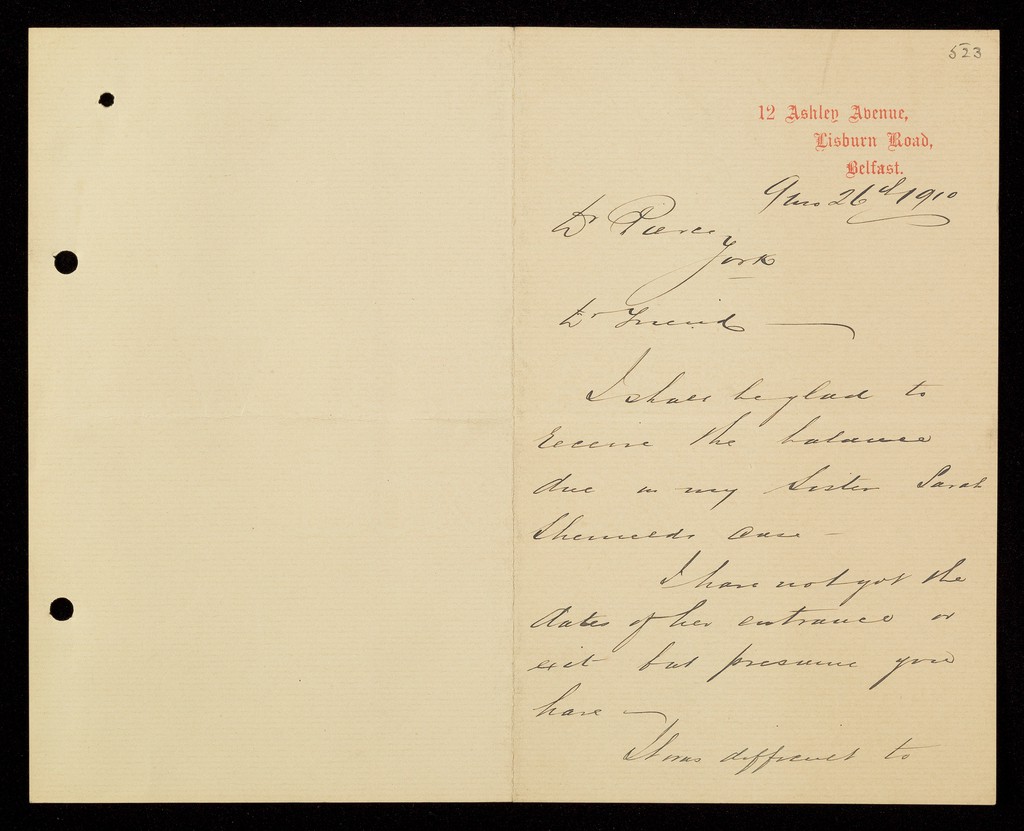 523
12 Ashley Avenue,
Lisburn Road,
Belfast.
9mo 26th 1910
Dr Pierce
York
Dr Friend
I shall be glad to
receive the balance
due in my Sister Sarah
case
I have not got the
dates of her entrance or
exit but presume you
have
It was difficult to